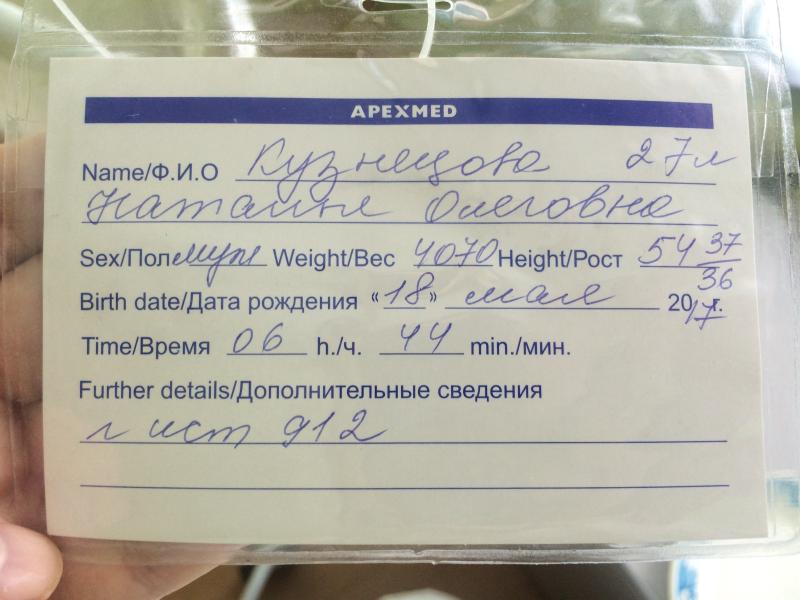 APEXMED
Name/Ф.И.О Кузнецова 27л
Наталья Олеговна
Sex/Пол муж Weight/Вес 4070 Height/Рост 54 37/36
Birth date/Дата рождения «18» мая 2017г.
Time/Время 06 h./ч. 44 min./мин.
Further details/Дополнительные сведения
г ист 912